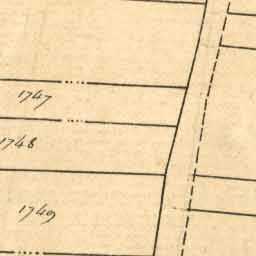 1747
1748
1749